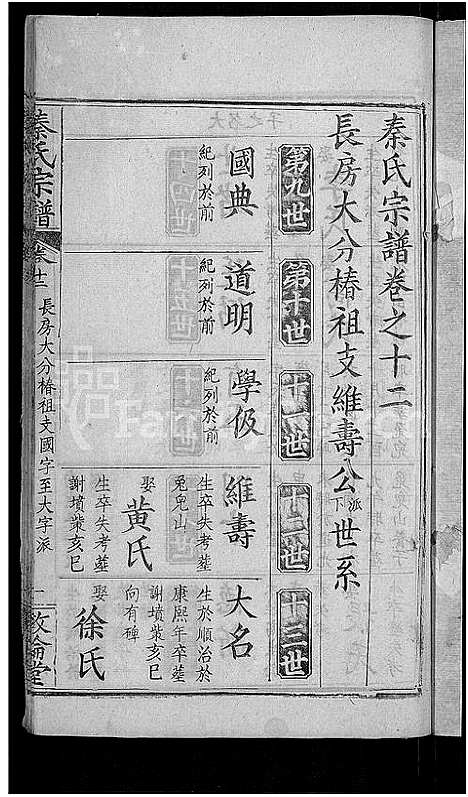 秦氏宗譜卷之十二
長房大分椿祖支維壽公派下世系
第九世
第十世
十一世
十二世
十三世
國典
紀列於前
道明
紀列於前
學伋
紀列於前
維壽
生卒失考葬
兎兒山
娶
黃氏
生卒失考葬
謝墳葉亥巳
大名
生於順治於
康熙年卒葬
謝墳葉亥巳
向有碑
娶
徐氏
秦氏宗譜
卷十二
長房大分椿祖支國字至大字派
一
敦倫堂